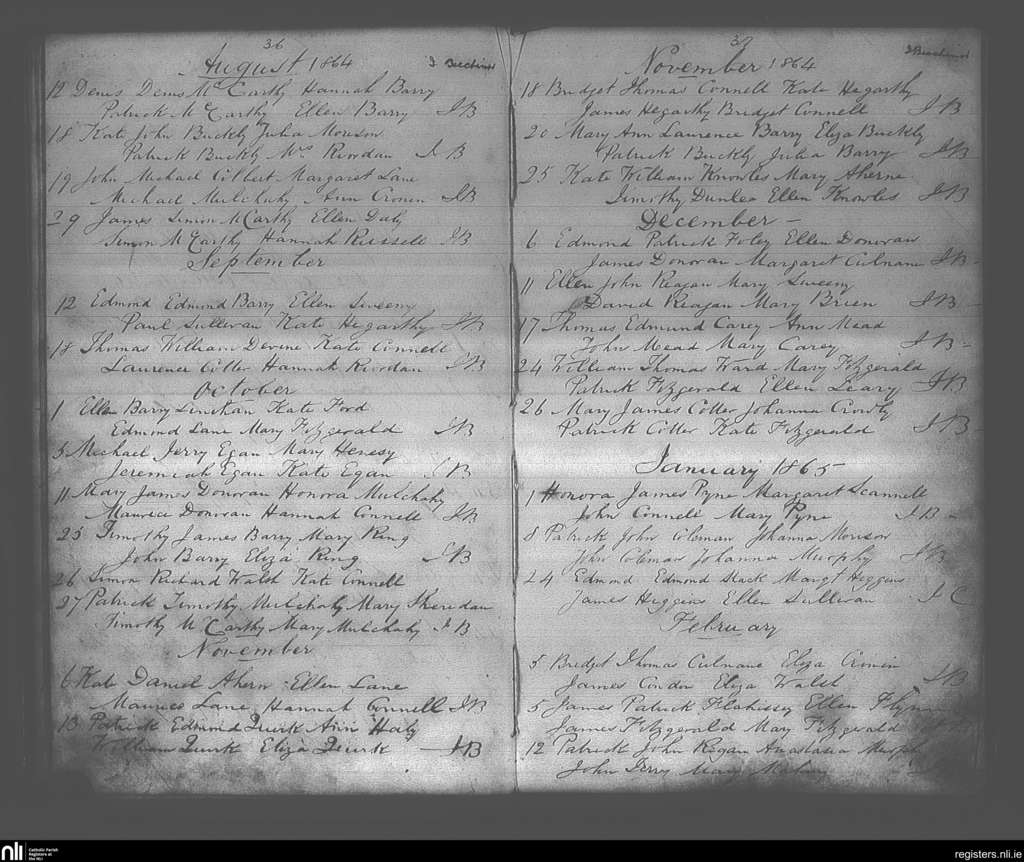 36
August 1864
12 Denis Denis McCarthy Hannah Barry
Patrick McCarthy Ellen Barry J B
18 Kate John Buckly Julia Monson
Patrick Buckly Mrs Riordan J B
19 John Michael Colbert Margaret Lane
Michael Mulchahy Ann Cronin J B
29 James Simon McCarthy Ellen Daly
Simon McCarthy Hannah Russell J B
September
12 Edmond Edmond Barry Ellen Sweeny
Paul Sullivan Kate Hegarthy J B
18 Thomas William Devine Kate Connell
Laurence Cotter Hannah Riordan J B
October
1 Ellen Barry Linehan Kate Ford
Edmond Lane Mary Fitzgerald J B
5 Michael Jerry Egan Mary Henesy
Jeremiah Egan Kate Egan J B
11 Mary James Donovan Honora Mulchahy
Maurice Donovan Hannah Connell J B
25 Timothy James Barry Mary Ring
John Barry Eliza Ring J B
26 Simon Richard Walsh Kate Connell
27 Patrick Timothy Mulchahy Mary Sheridan
Timothy McCarthy Mary Mulchahy J B
November
6 Kate Daniel Ahern Ellen Lane
Maurice Lane Hannah Connell J B
13 Patrick Edmund Quirk Ann Haly
William Quirk Eliza Quirk J B
37
November 1864
18 Bridget Thomas Connell Kate Hegarthy
James Hegarthy Bridget Connell J B
20 Mary Ann Laurence Barry Eliza Buckly
Patrick Buckly Julia Barry J B
25 Kate William Knowles Mary Aherne
Timothy Dunlea Ellen Knowles J B
December
6 Edmond Patrick Foley Ellen Donovan
James Donovan Margaret Culnane J B
11 Ellen John Reagan Mary Sweeny
David Reagan Mary Brien J B
17 Thomas Edmund Carey Ann Mead
John Mead Mary Carey J B
24 William Thomas Ward Mary Fitzgerald
Patrick Fitzgerald Ellen Leary J B
26 Mary James Cotter Johanna Crowly
Patrick Cotter Kate Fitzgerald J B
January 1865
1 Honora James Pyne Margaret Scannell
John Connell Mary Pyne J B
8 Patrick John Coleman Johanna Monson
John Coleman Johanna Murphy J B
24 Edmond Edmond Stack Margt Higgins
James Higgins Ellen Sullivan J C
February
5 Bridget Thomas Culnane Eliza Cronin
James Condon Eliza Walsh J B
5 James Patrick Flahissy Ellen Flynn
James Fitzgerald Mary Fitzgerald
12 Patrick John Regan Anastasia Murphy
John Mary
nli Catholic Parish Registers at the NLI
registers.nli.ie